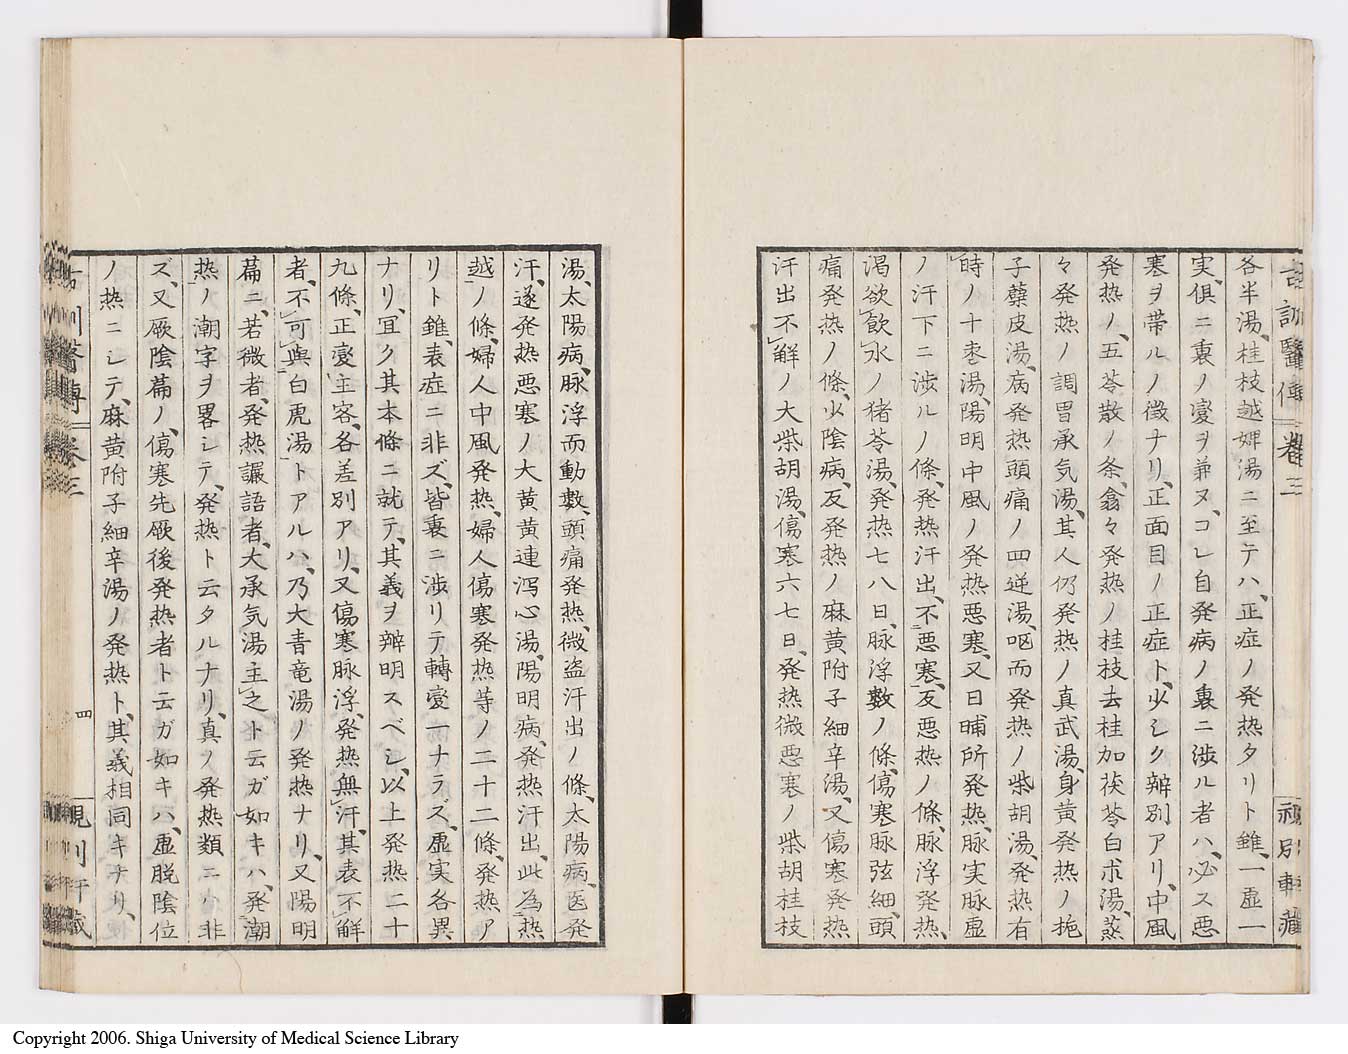 古訓醫傳 卷三
各半湯、桂枝越婢湯ニ至テハ、正症ノ発热タリト雖、一虚一
実、俱ニ裏ノ変ヲ兼ヌ、コレ自発病ノ裏ニ渉ル者ハ、必ス悪
寒ヲ帯ルノ徴ナリ、正面目ノ正症ト、少シク辨別アリ、中風
発热ノ、五苓散ノ条、翕々発热ノ桂枝去桂加茯苓白朮湯、蒸
々発热ノ調胃承気湯、其人仍発热ノ真武湯、身黄発热ノ梔
子蘗皮湯、病発热頭痛ノ四逆湯、呕而発热ノ柴胡湯、発热有
時ノ十枣湯、陽明中風ノ発热悪寒、又日晡所発热、脉実脉虚
ノ汗下ニ渉ルノ條、発热汗出、不悪寒、反悪热ノ條、脉浮発热、
渇欲飲水ノ猪苓湯、発热七八日、脉浮數ノ條、傷寒脉弦細、頭
痛発热ノ條、少陰病、反発热ノ麻黄附子細辛湯、又傷寒発热
汗出不解ノ大柴胡湯、傷寒六七日、発热微悪寒ノ柴胡桂枝
湯、太陽病、脉浮而動數、頭痛発热、微盗汗出ノ條、太陽病、医発
汗、遂発热悪寒ノ大黄黄連瀉心湯、陽明病、発热汗出、此為热
越ノ條、婦人中風発热、婦人傷寒発热等ノ二十二條、発热ア
リト雖、表症ニ非ズ、皆裏ニ渉リテ轉変一ナラズ、虚実各異
ナリ、宜ク其本條ニ就テ、其義ヲ辨明スベシ、以上発热二十
九條、正変主客、各差別アリ、又傷寒脉浮、発热無汗、其表不解
者、不可與白虎湯トアルハ、乃大青竜湯ノ発热ナリ、又陽明
萹ニ、若微者、発热譫語者、大承気湯主之ト云ガ如キハ、発潮
热ノ潮字ヲ畧シテ、発热ト云タルナリ、真ノ発热類ニハ非
ズ、又厥陰萹ノ、傷寒先厥後発热者ト云ガ如キハ、虚脱陰位
ノ热ニシテ、麻黄附子細辛湯ノ発热ト、其義相同キナリ、
卷三
四
Copyright 2006. Shiga University of Medical Science Library